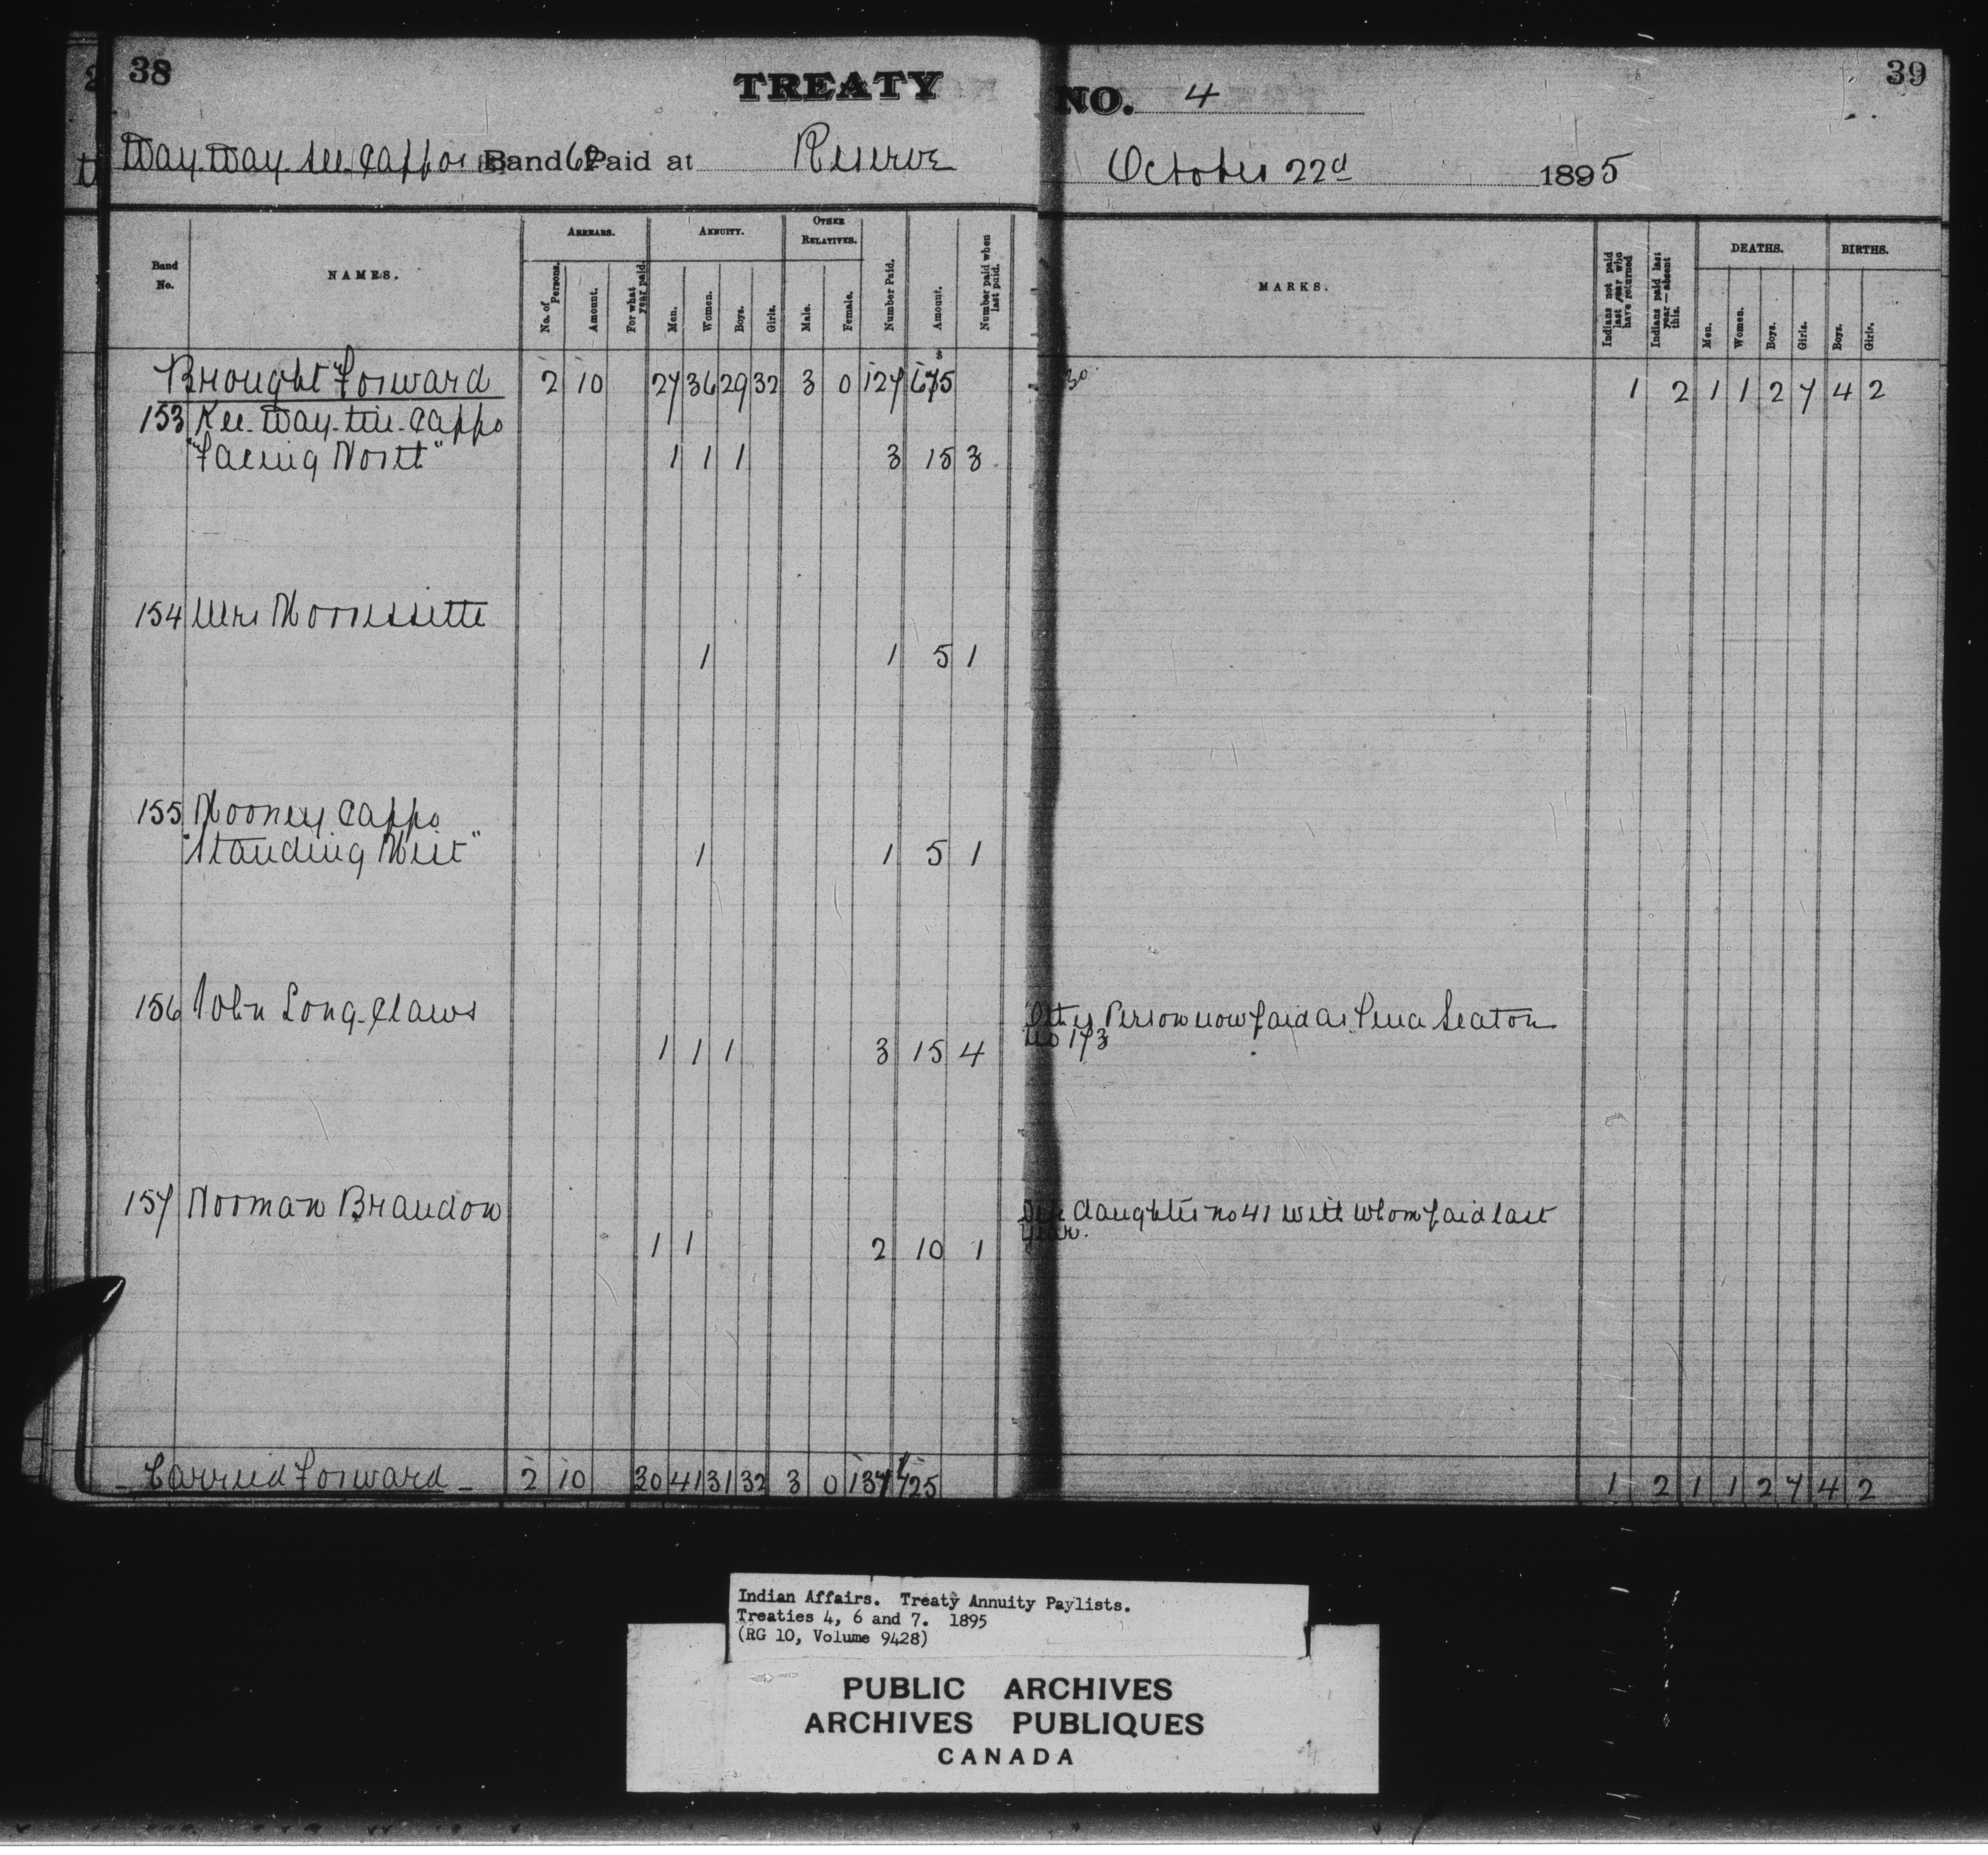 38
TREATY NO. 4
39
Way-Way-See-Cappo's Band 62 Paid at Reserve October 22d 1895
Band No.
NAMES.
ARREARS.
No. of Persons.
Amount.
For what year paid.
ANNUITY.
Men.
Women.
Boys.
Girls.
OTHER RELATIVES.
Male.
Female.
Number Paid.
Amount.
Number paid when last paid.
MARKS.
Indians not paid last year who have returned
Indians paid last year—absent this.
DEATHS.
Men.
Women.
Boys.
Girls.
BIRTHS.
Boys.
Girls.
Brought Forward 2 10 27 36 29 32 3 0 127 675 1 2 1 1 2 7 4 2
153 Kee-Way-tin-Cappo
"Facing North" 1 1 1 3 15 3
154 Mrs Morrissette
1 1 5 1
155 Mooney Cappo
"Standing West" 1 1 5 1
156 John Long-Claws Other Person now paid as Seaton
1 1 1 3 15 4 no 173
157 Norman Brandon daughter no 41 with whom paid last
1 1 2 10 1 year.
Carried Forward 2 10 30 41 31 32 3 0 137 725 1 2 1 1 2 7 4 2
Indian Affairs. Treaty Annuity Paylists.
Treaties 4, 6 and 7. 1895
(RG 10, Volume 9428)
PUBLIC ARCHIVES
ARCHIVES PUBLIQUES
CANADA